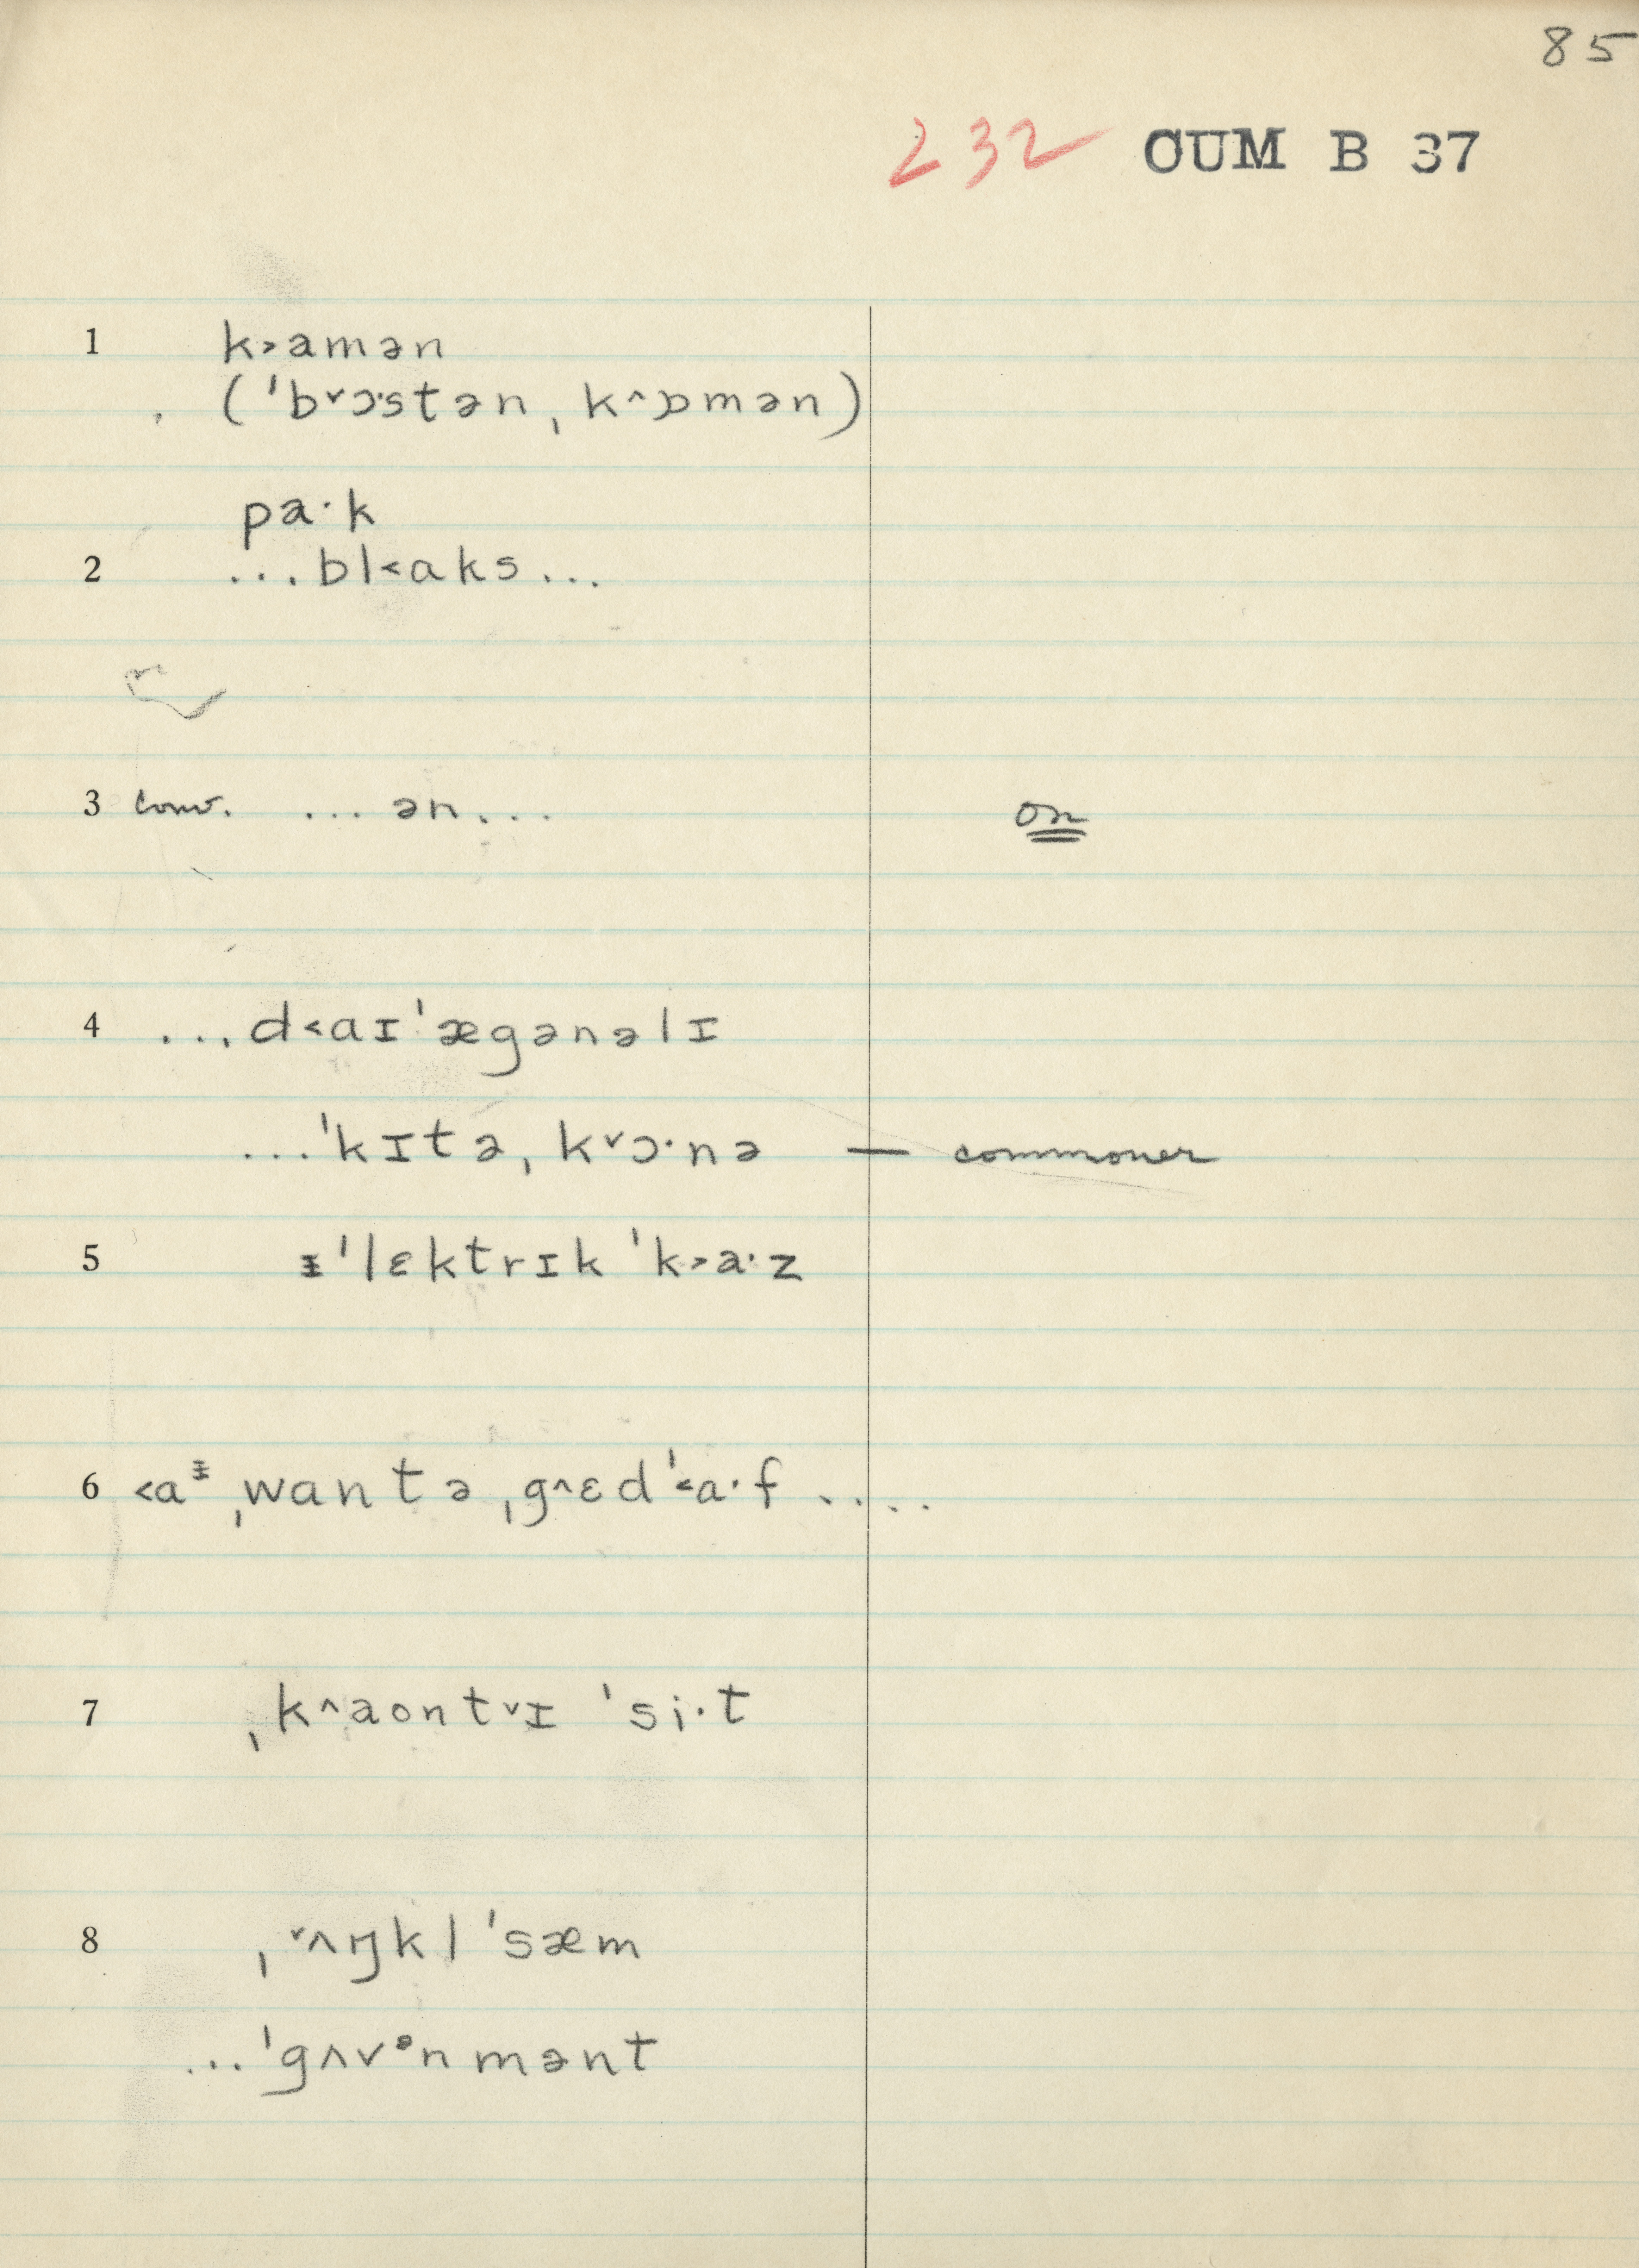 85
232 CUM B 37
1 k˃amən
(ˈb˅ɔ·stən ˌk˄ɒmən)
pa·k
2 ...bl˂ɑks...
3 conv. ...ən... on
4 ...d˂ɑɪˈægənəlɪ
...ˈkɪtəˌk˅ɔ·nə — commoner
5 ᵻˈlɛktrɪk ˈk˃a·z
6 ˂ɑᵻ ˌwɑntə ˌg˄ɛdˈ˂ɑ·f ....
7 ˌk˄aontr˅ɪ ˈsi·t
8 ˌ˅ʌŋkl ˈsæm
...ˈgʌvᵊnmənt